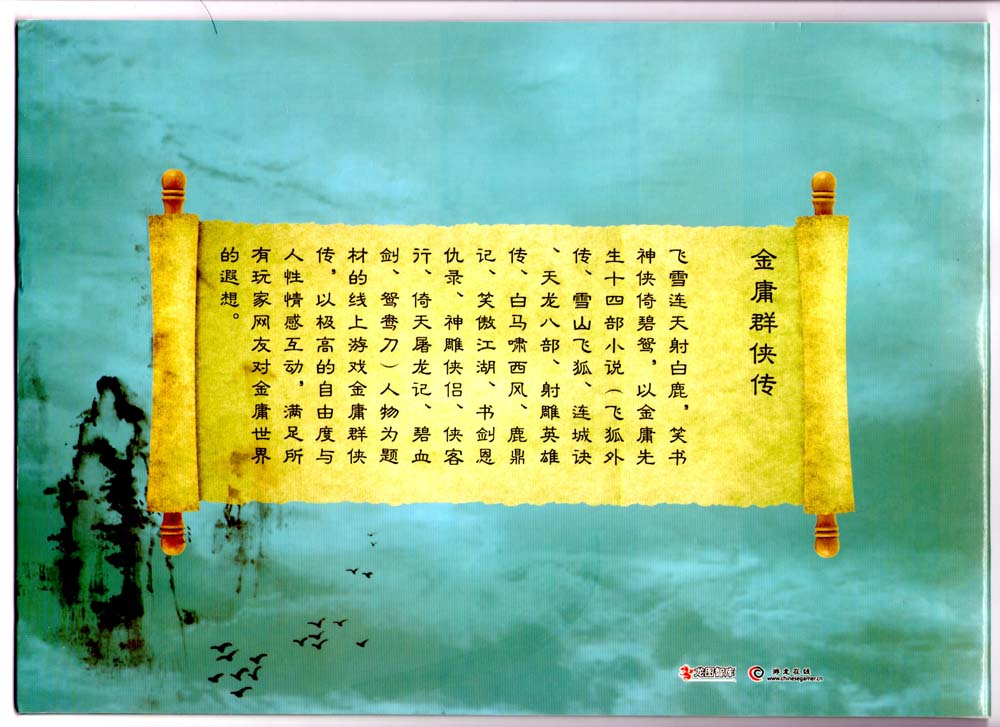 金庸群侠传
飞雪连天射白鹿，笑书
神侠倚碧鸳，以金庸先
生十四部小说（飞狐外
传、雪山飞狐、连城诀
、天龙八部、射雕英雄
传、白马啸西风、鹿鼎
记、笑傲江湖、书剑恩
仇录、神雕侠侣、侠客
行、倚天屠龙记、碧血
剑、鸳鸯刀）人物为题
材的线上游戏金庸群侠
传，以极高的自由度与
人性情感互动，满足所
有玩家网友对金庸世界
的遐想。
龙图智库
游龙在线
www.chinesegamer.cn